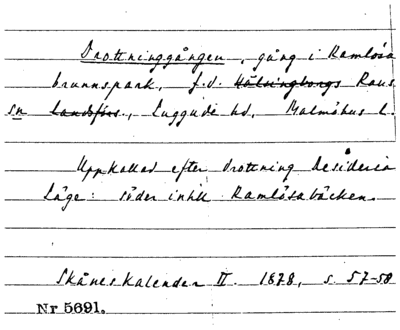 Drottninggången, gång i Ramlösa
brunnspark, f.d. Hälsingborgs Raus
sn Landsförs., Luggude hd, Malmöhus l.
Uppkallad efter drottning Desideria
Läge: söder intill Ramlösabäcken.
Skånes Kalender II. 1878, s. 57-58
Nr 5691.